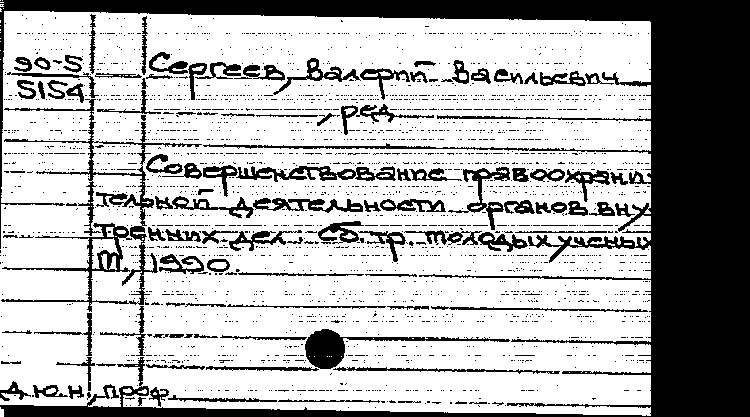 90-5
5154
Сергеев, Валерий Васильевич
, ред
Совершенствование правоохрани
тельной деятельности органов вну
тренних дел: Сб. тр. молодых ученых
М., 1990.
д.ю.н., проф.